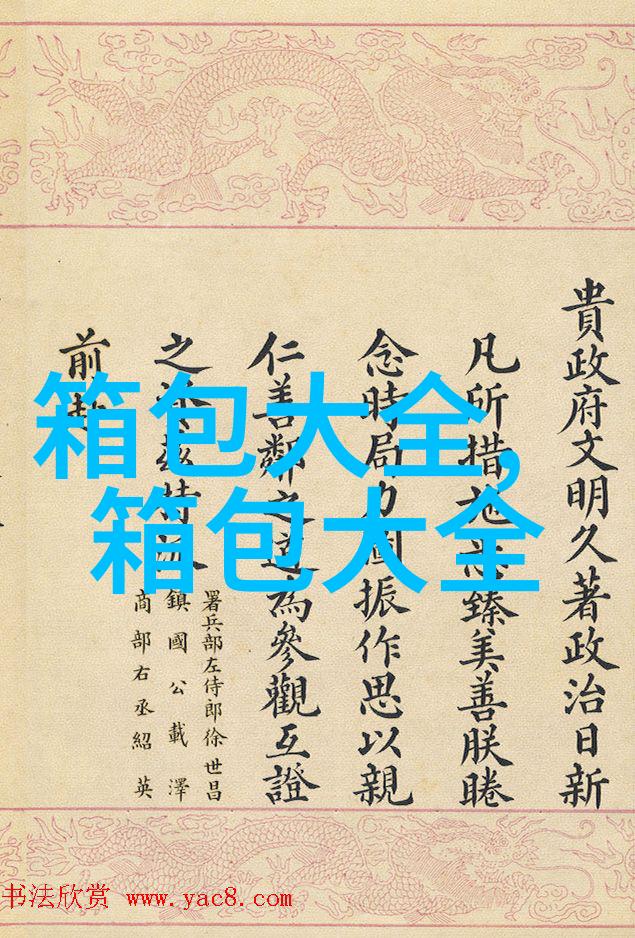 箱包大全,
箱包大全
貴政府文明久著政治日新
凡所措施臻美善朕睠
念時局力圖振作思以親
仁善鄰之道為參觀互證
之茲特派
署兵部左侍郎徐世昌
鎮國公載澤
商部右丞紹英
前赴
书法欣赏 www.yac8.com